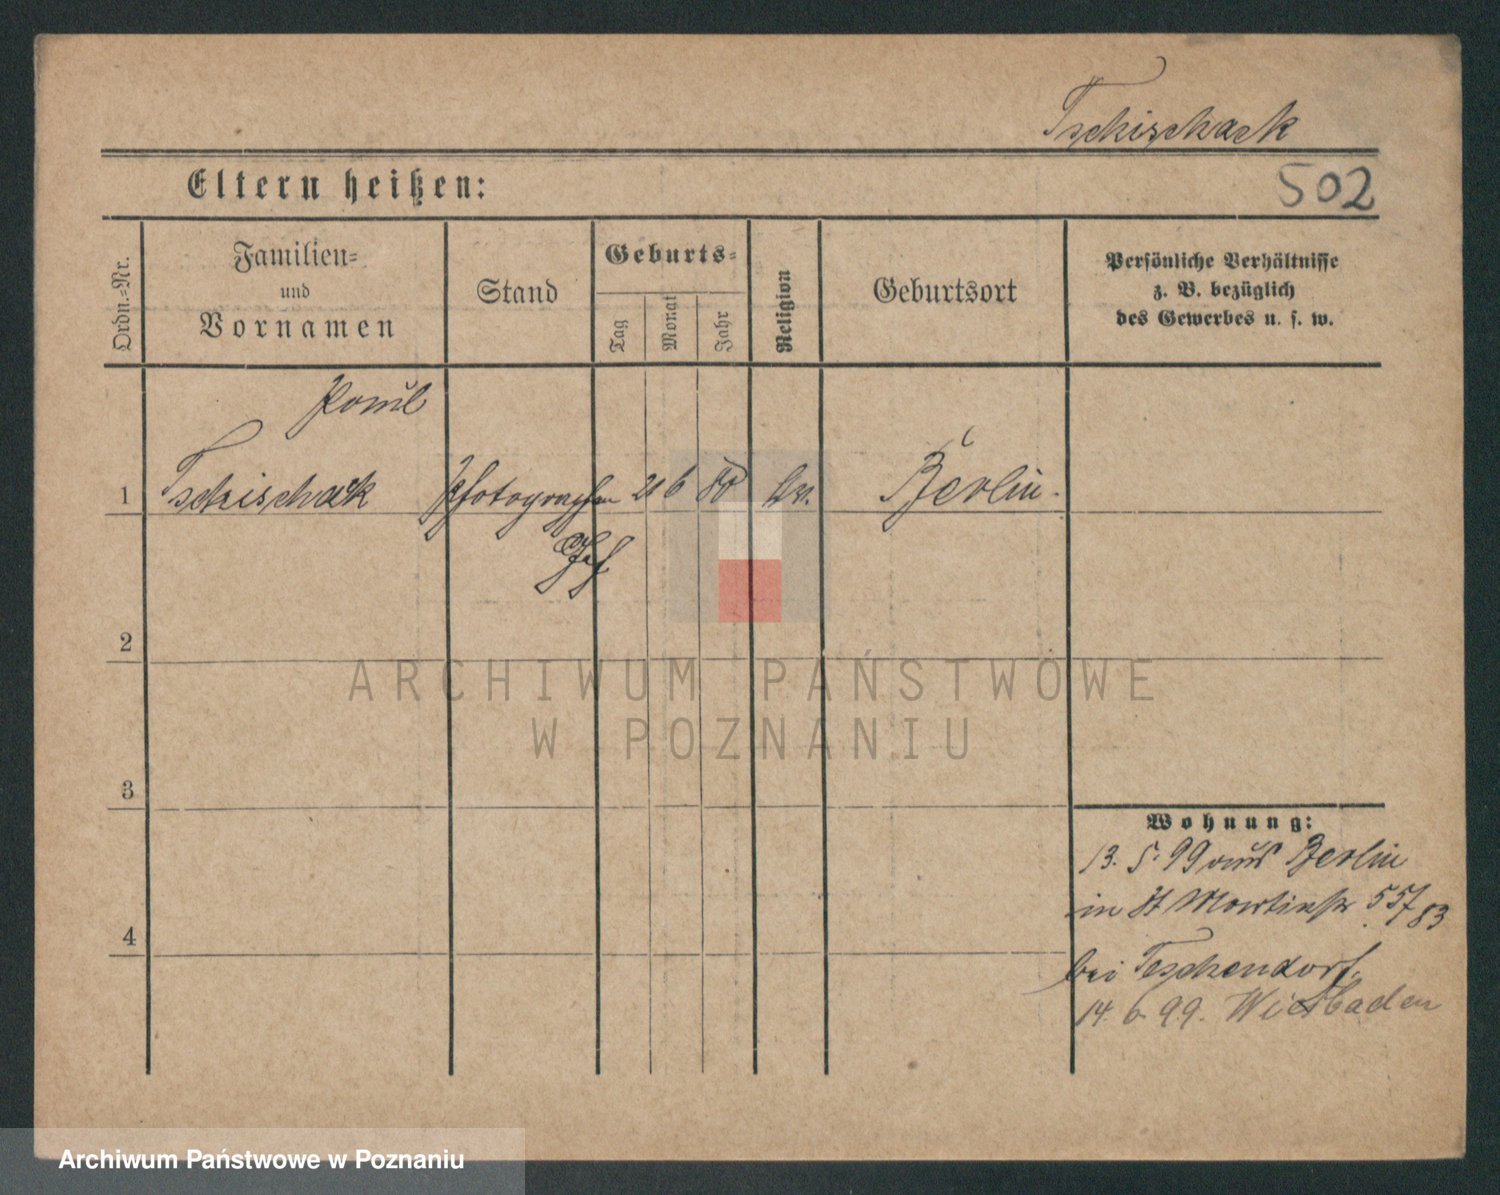 Tschischack
502
Eltern heißen:
Ordn.-Nr.
Familien-
und
Vornamen
Stand
Geburts-
Tag
Monat
Jahr
Religion
Geburtsort
Persönliche Verhältnisse
z. B. bezüglich
des Gewerbes u. s. w.
Paul
1 Tschischack Photographen 20 6 80 Ev. Berlin.
Gehf
2
ARCHIWUM PAŃSTWOWE
W POZNANIU
3
Wohnung:
13. 5. 99 aus Berlin
in St Martinstr 55/83
4
bei Teschendorf.
14. 6. 99. Wiesbaden
Archiwum Państwowe w Poznaniu